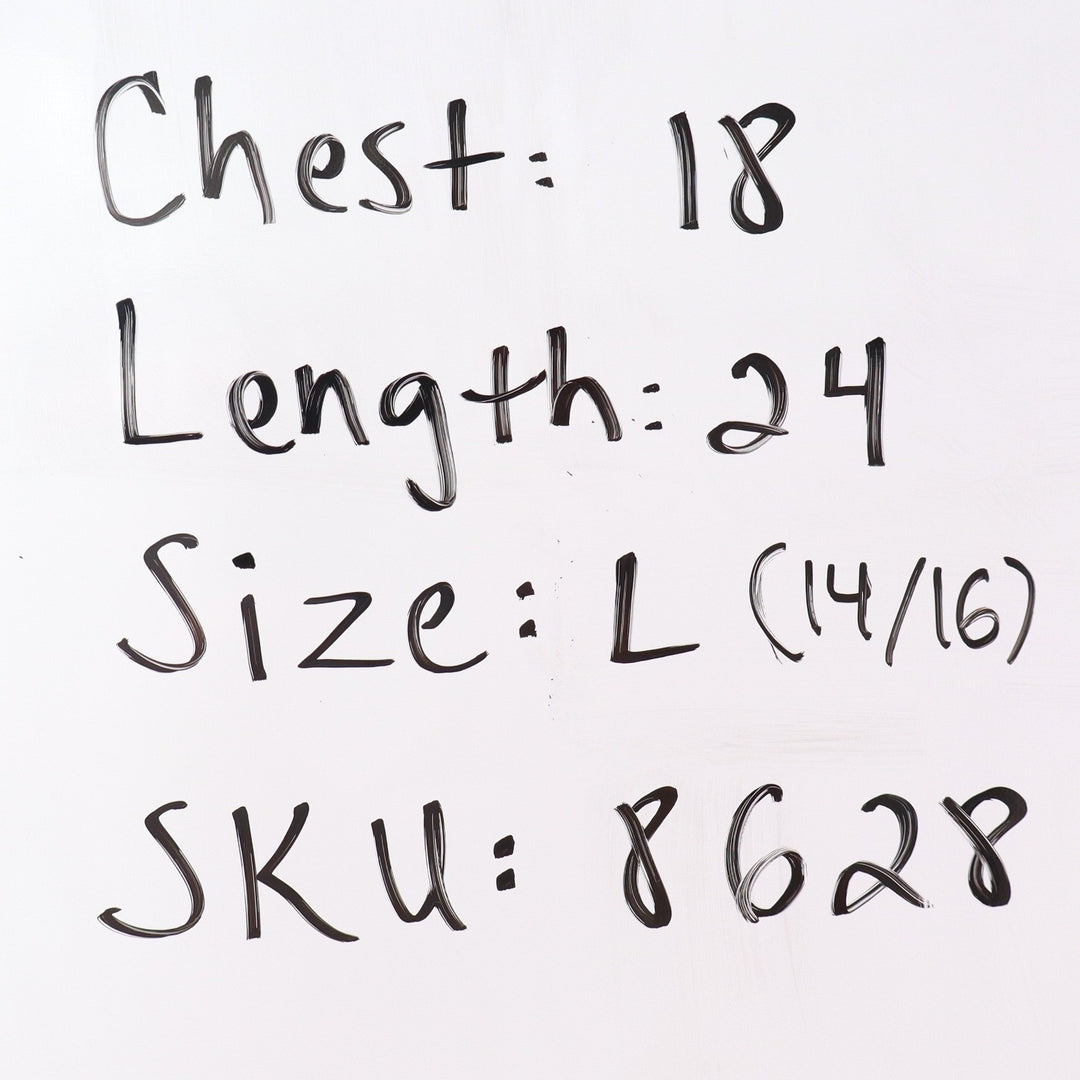 Chest: 18
Length: 24
Size: L (14/16)
SKU: 8628